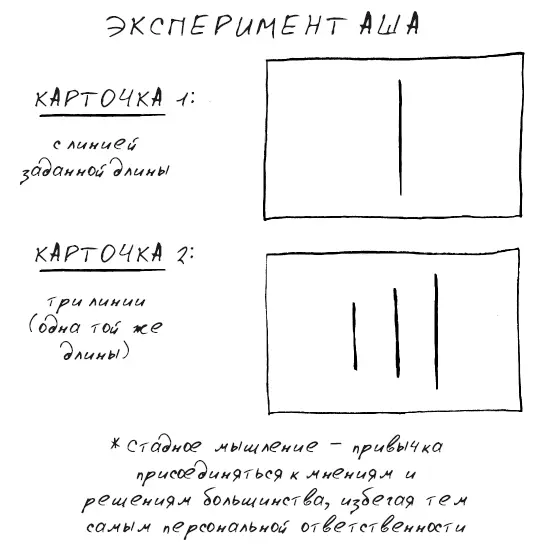 ЭКСПЕРИМЕНТ АША
КАРТОЧКА 1:
с линией
заданной длины
КАРТОЧКА 2:
три линии
(одна той же
длины)
* стадное мышление – привычка
присоединяться к мнениям и
решениям большинства, избегая тем
самым персональной ответственности